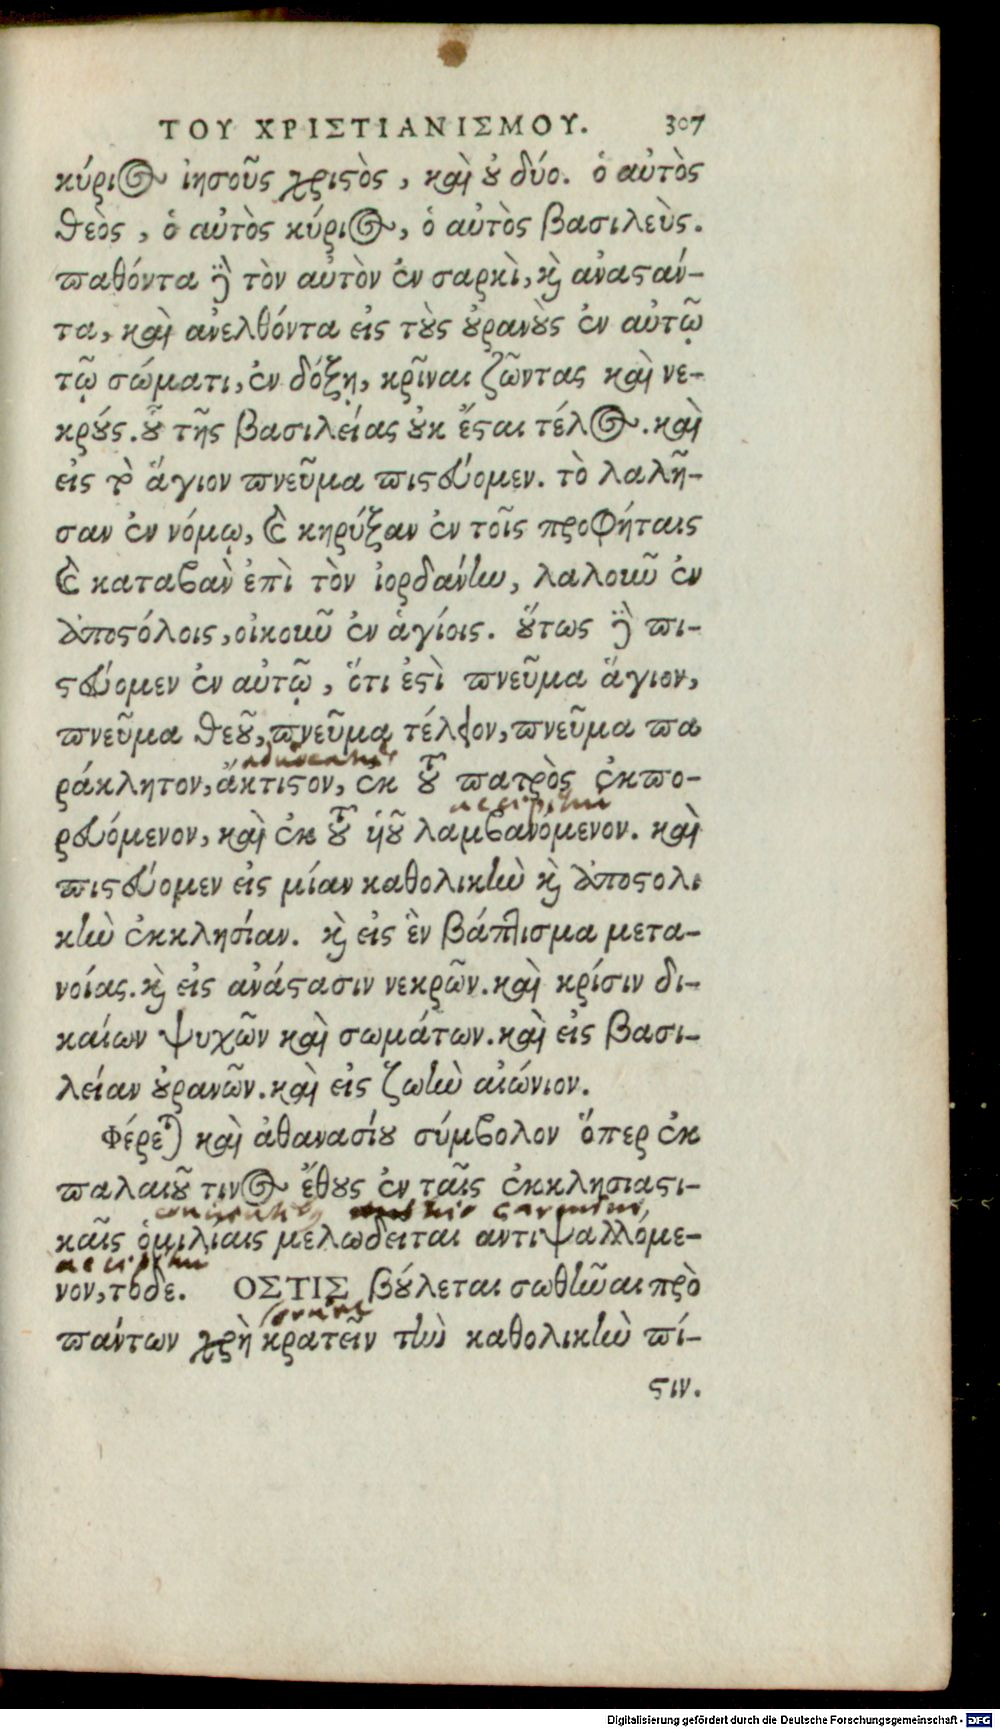 ΤΟΥ ΧΡΙΣΤΙΑΝΙΣΜΟΥ. 307
κύριος ἰησοῦς χριστὸς, καὶ οὐ δύο. ὁ αὐτὸς
θεὸς, ὁ αὐτὸς κύριος, ὁ αὐτὸς βασιλεὺς.
παθόντα δὲ τὸν αὐτὸν ἐν σαρκὶ, καὶ ἀναστάν-
τα, καὶ ἀνελθόντα εἰς τοὺς οὐρανοὺς ἐν αὐτῷ
τῷ σώματι, ἐν δόξῃ, κρῖναι ζῶντας καὶ νε-
κρούς. οὗ τῆς βασιλείας οὐκ ἔσται τέλος. καὶ
εἰς τὸ ἅγιον πνεῦμα πιστεύομεν. τὸ λαλῆ-
σαν ἐν νόμῳ, καὶ κηρύξαν ἐν τοῖς προφήταις
καὶ καταβὰν ἐπὶ τὸν ἰορδάνην, λαλοῦν ἐν
ἀποστόλοις, οἰκοῦν ἐν ἁγίοις. οὕτως δὲ πι-
στεύομεν ἐν αὐτῷ, ὅτι ἐστὶ πνεῦμα ἅγιον,
πνεῦμα θεοῦ, πνεῦμα τέλειον, πνεῦμα πα
ράκλητον, ἄκτιστον, ἐκ τοῦ πατρὸς ἐκπο-
ρευόμενον, καὶ ἐκ τοῦ υἱοῦ λαμβανόμενον. καὶ
πιστεύομεν εἰς μίαν καθολικὴν καὶ ἀποστολι
κὴν ἐκκλησίαν. καὶ εἰς ἓν βάπτισμα μετα-
νοίας. καὶ εἰς ἀνάστασιν νεκρῶν. καὶ κρίσιν δι-
καίων ψυχῶν καὶ σωμάτων. καὶ εἰς βασι-
λείαν οὐρανῶν. καὶ εἰς ζωὴν αἰώνιον.
Φέρεται καὶ ἀθανασίου σύμβολον ὅπερ ἐκ
παλαιοῦ τινος ἔθους ἐν ταῖς ἐκκλησιαστι-
καῖς ὁμιλίαις μελῳδεῖται ἀντιψαλλόμε-
νον, τόδε. ΟΣΤΙΣ βούλεται σωθῆναι πρὸ
πάντων χρὴ κρατεῖν τὴν καθολικὴν πί-
στιν.
Digitalisierung gefördert durch die Deutsche Forschungsgemeinschaft - DFG